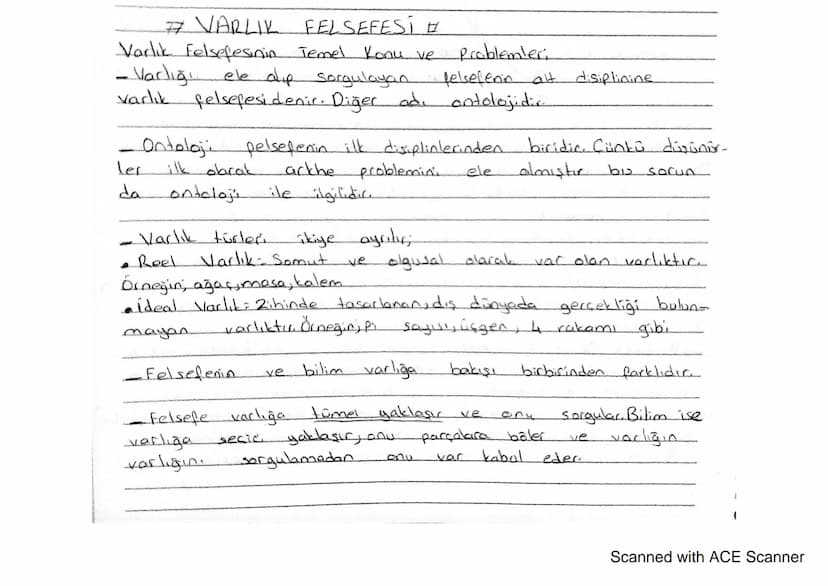 VARLIK FELSEFESİ
Varlık Felsefesinin Temel Konu ve Problemleri
- Varlığı ele alıp sorgulayan felsefenin alt disiplinine
varlık felsefesi denir. Diğer adı ontolojidir.
- Ontoloji felsefenin ilk disiplinlerinden biridir. Çünkü düşünür-
ler ilk olarak arkhe problemini ele almıştır bu sorun
da ontoloji ile ilgilidir.
- Varlık türleri ikiye ayrılır;
• Reel Varlık = Somut ve olgusal olarak var olan varlıktır.
Örneğin; ağaç, masa, kalem
• İdeal Varlık = Zihinde tasarlanan, dış dünyada gerçekliği bulun-
mayan varlıktır. Örneğin; pi sayısı, üçgen, 4 rakamı gibi
- Felsefenin ve bilim varlığa bakışı birbirinden farklıdır.
- Felsefe varlığa tümel yaklaşır ve onu sorgular. Bilim ise
varlığa seçici yaklaşır, onu parçalara böler ve varlığın
varlığını sorgulamadan onu var kabul eder.
Scanned with ACE Scanner